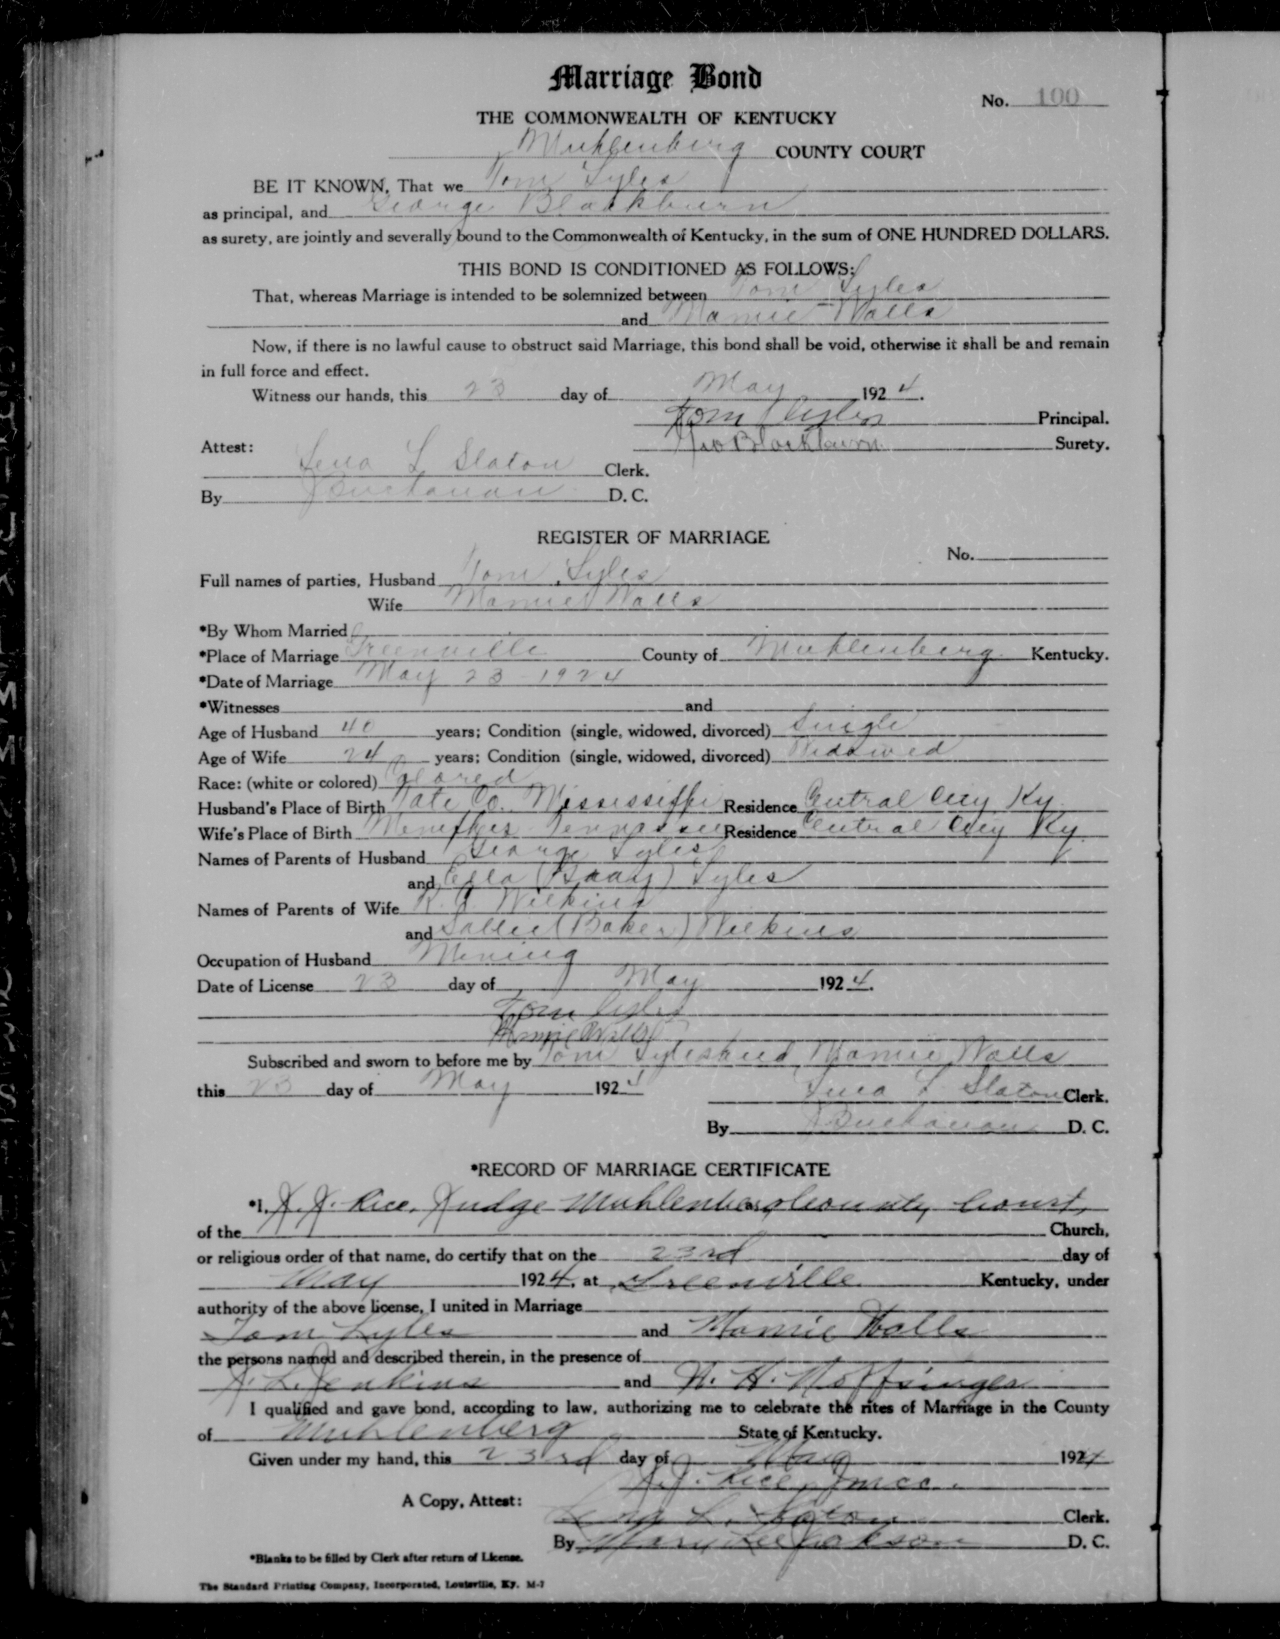 Marriage Bond
No. 100
THE COMMONWEALTH OF KENTUCKY
Muhlenberg COUNTY COURT
BE IT KNOWN, That we Tom Lyles
as principal, and George Blackburn
as surety, are jointly and severally bound to the Commonwealth of Kentucky, in the sum of ONE HUNDRED DOLLARS.
THIS BOND IS CONDITIONED AS FOLLOWS:
That, whereas Marriage is intended to be solemnized between Tom Lyles
and Mamie Walls
Now, if there is no lawful cause to obstruct said Marriage, this bond shall be void, otherwise it shall be and remain
in full force and effect.
Witness our hands, this 23 day of May 1924.
Tom Lyles Principal.
Attest: Geo Blackburn Surety.
Lena L Slaton Clerk.
By J Buchanan D. C.
REGISTER OF MARRIAGE
No.
Full names of parties, Husband Tom Lyles
Wife Mamie Walls
*By Whom Married
*Place of Marriage Greenville County of Muhlenberg Kentucky.
*Date of Marriage May 23 - 1924
*Witnesses and
Age of Husband 40 years; Condition (single, widowed, divorced) Single
Age of Wife 24 years; Condition (single, widowed, divorced) Widowed
Race: (white or colored) Colored
Husband's Place of Birth Tate Co. Mississippi Residence Central City Ky.
Wife's Place of Birth Memphis Tennessee Residence Central City Ky.
Names of Parents of Husband George Lyles
and Ella ( ) Lyles
Names of Parents of Wife Wilkins
and Sallie (Baker) Wilkins
Occupation of Husband Mining
Date of License 23 day of May 1924.
Tom Lyles
Mamie Walls
Subscribed and sworn to before me by Tom Lyles and Mamie Walls
this 23 day of May 1924
Lena L Slaton Clerk.
By J Buchanan D. C.
*RECORD OF MARRIAGE CERTIFICATE
*I, Rice, Judge Muhlenberg County Court,
of the Church,
or religious order of that name, do certify that on the 23rd day of
May 1924, at Greenville Kentucky, under
authority of the above license, I united in Marriage
Tom Lyles and Mamie Walls
the persons named and described therein, in the presence of
L. Jenkins and W. H. Noffsinger
I qualified and gave bond, according to law, authorizing me to celebrate the rites of Marriage in the County
of Muhlenberg State of Kentucky.
Given under my hand, this 23rd day of May 1924
Rice, Jmcc.
A Copy, Attest:
Lena L. Slaton Clerk.
By Mary Lee Jackson D. C.
*Blanks to be filled by Clerk after return of License.
The Standard Printing Company, Incorporated, Louisville, Ky. M-7